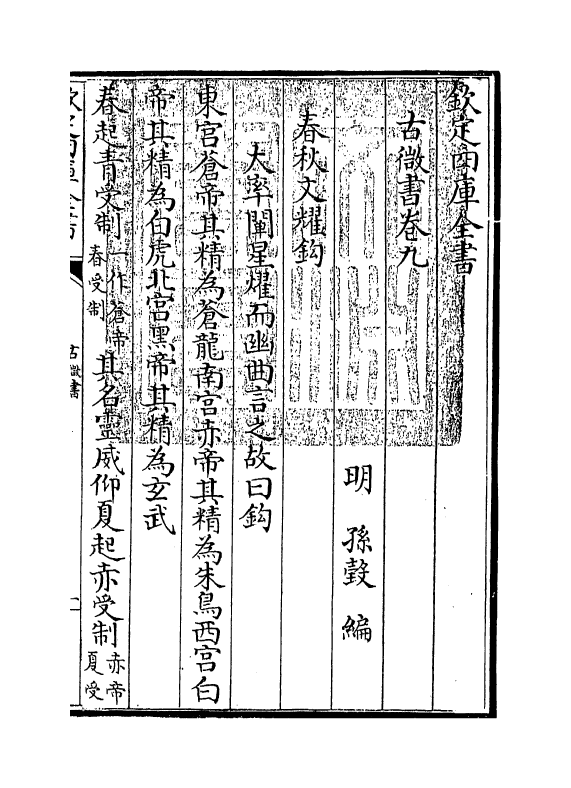 欽定四庫全書
古微書卷九
明 孫瑴 編
春秋文耀鈎
大率闡星燿而幽曲言之故曰鈎
東宮蒼帝其精為蒼龍南宮赤帝其精為朱鳥西宮白
帝其精為白虎北宮黑帝其精為玄武
春起青受制一作蒼帝春受制其名靈威仰夏起赤受制赤帝夏受
古微書